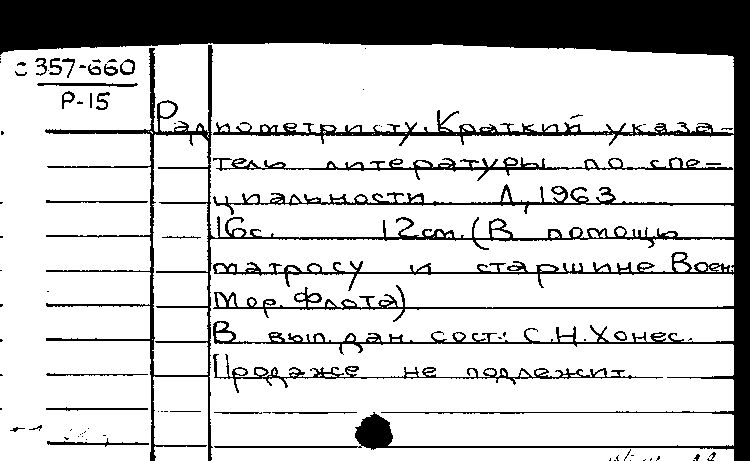 с 357-660
Р-15
Радиометристу. Краткий указа-
тель литературы по спе-
циальности. Л, 1963
16с. 12см. (В помощь
матросу и старшине Воен.
Мор. Флота)
В вып. дан. сост.: С.Н.Хонес.
Продаже не подлежит.